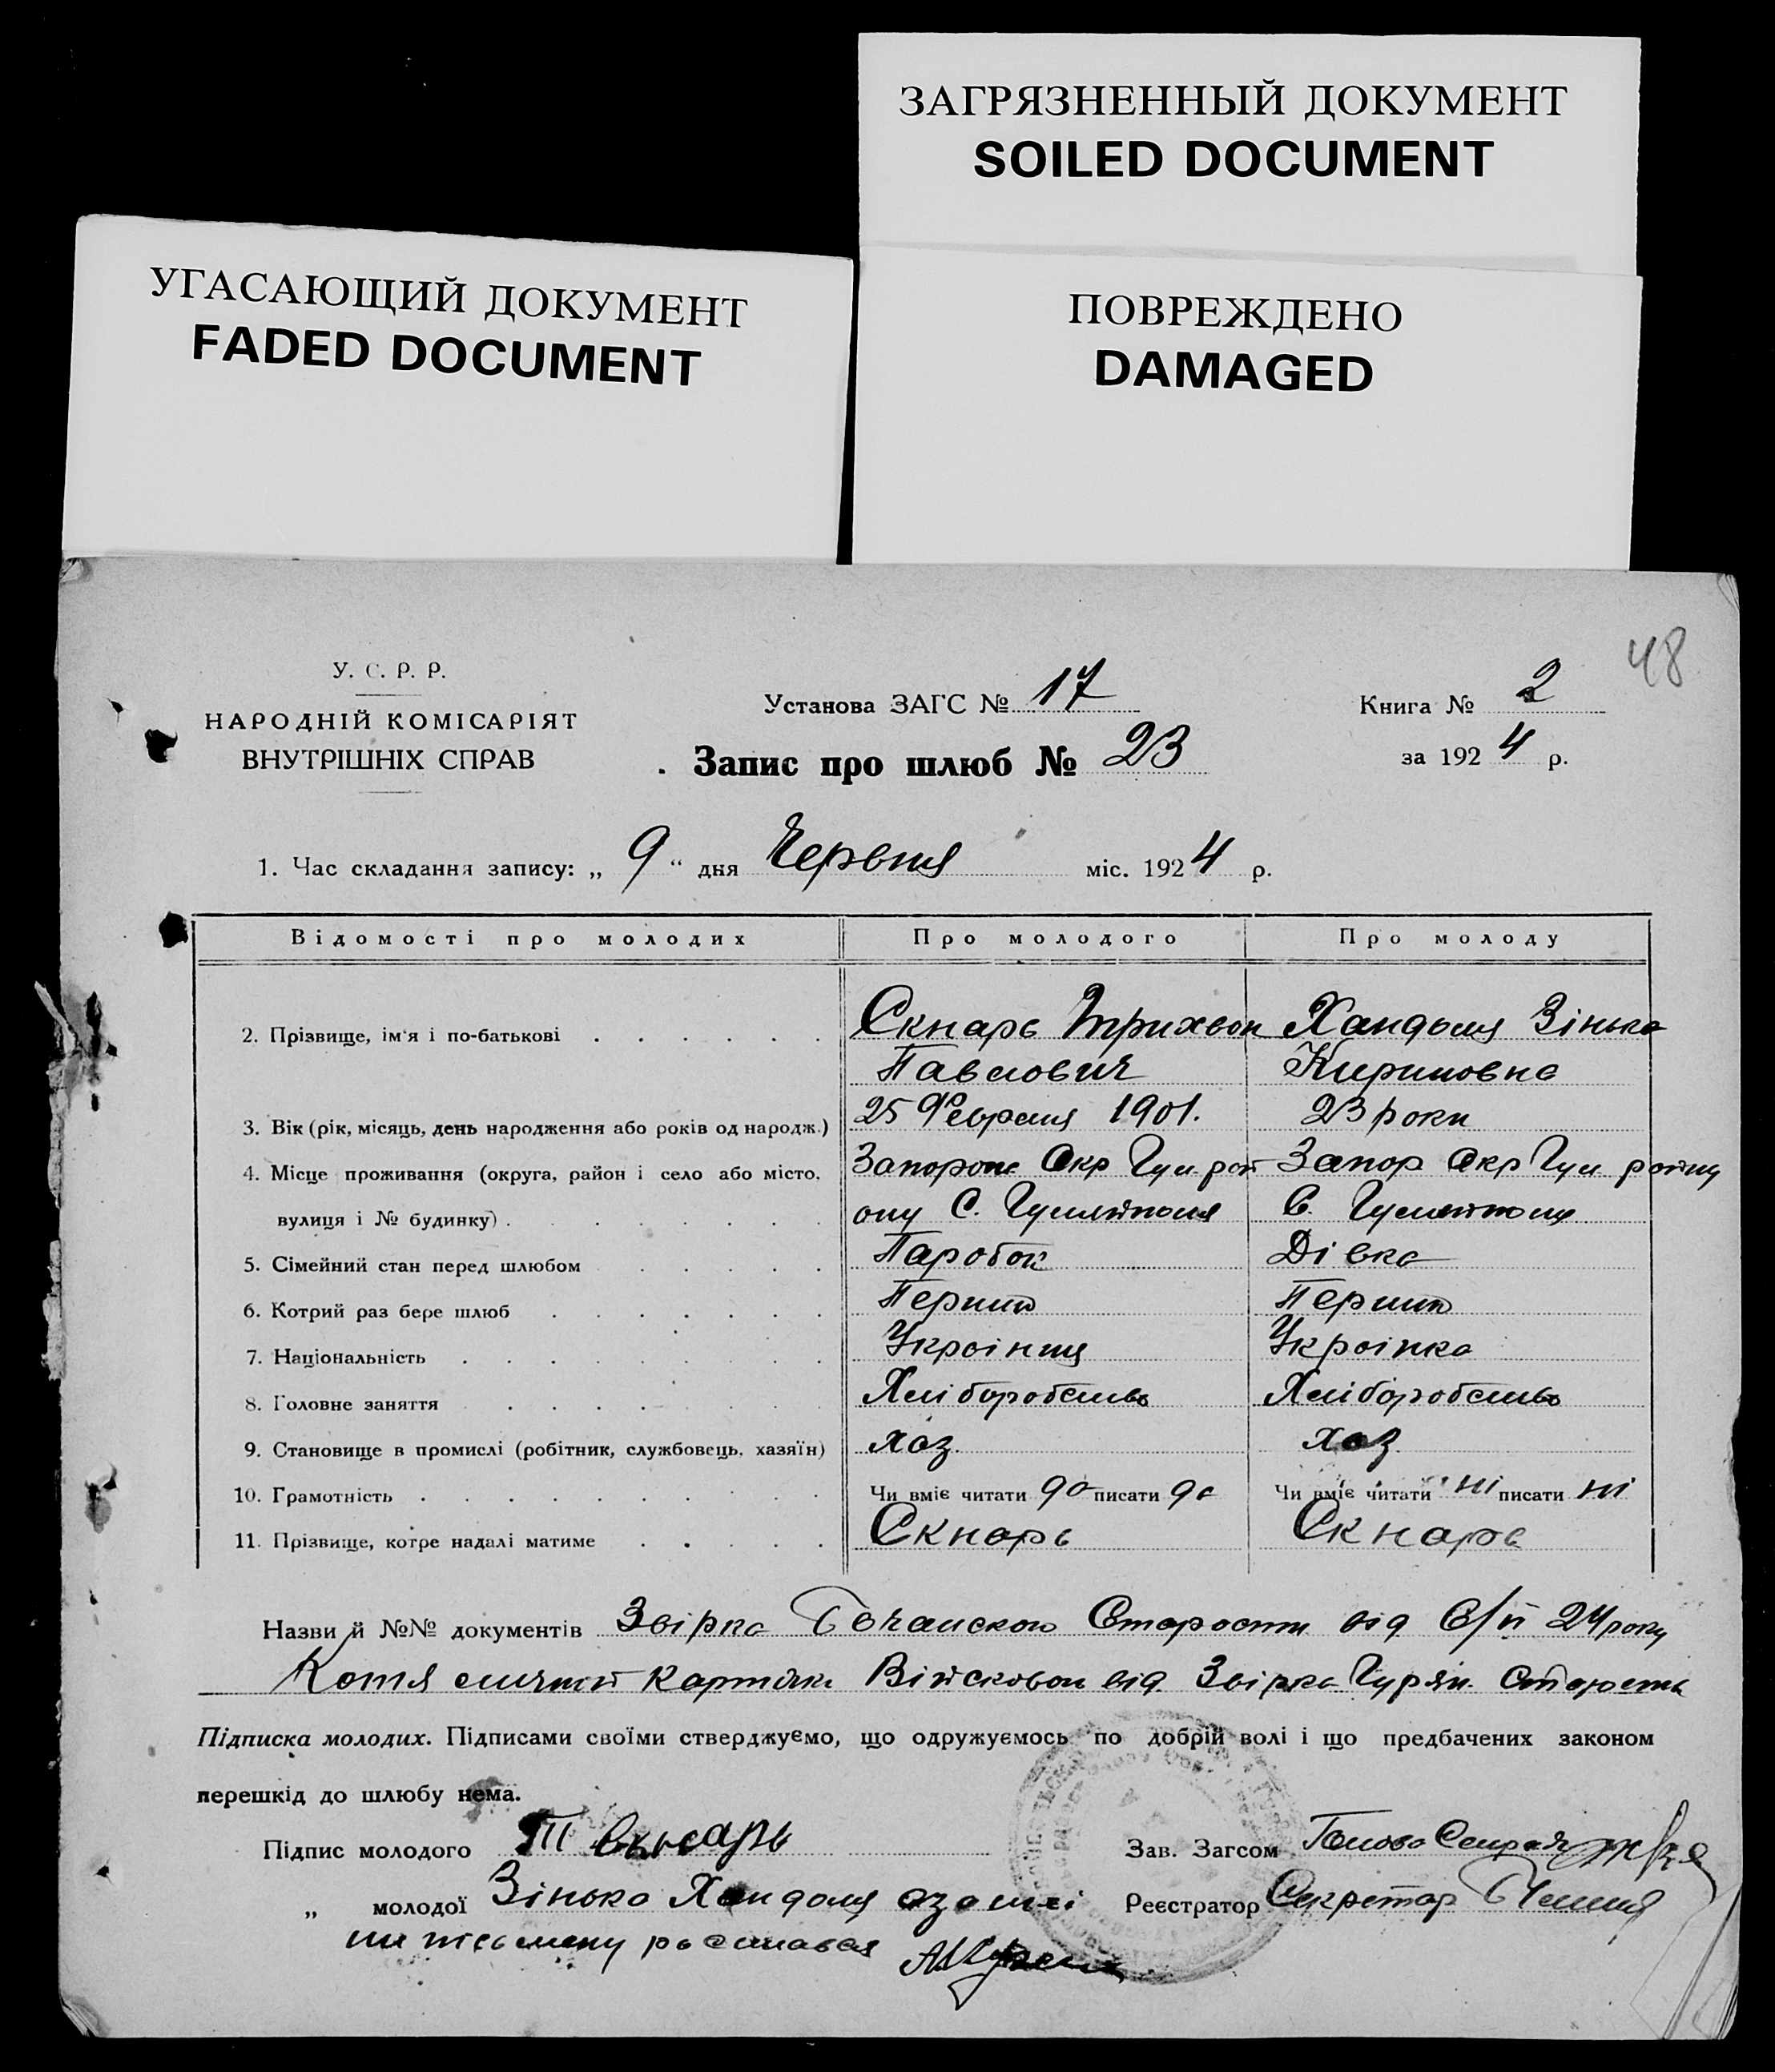 ЗАГРЯЗНЕННЫЙ ДОКУМЕНТ
SOILED DOCUMENT
УГАСАЮЩИЙ ДОКУМЕНТ
FADED DOCUMENT
ПОВРЕЖДЕНО
DAMAGED
48
У. С. Р. Р.
НАРОДНІЙ КОМІСАРІЯТ
ВНУТРІШНІХ СПРАВ
Установа ЗАГС № 17
Книга № 2
Запис про шлюб № 23
за 1924 р.
1. Час складання запису: „ 9 “ дня Червня міс. 1924 р.
Відомості про молодих Про молодого Про молоду
2. Прізвище, ім'я і по-батькові Скнарь Трихвон Хандоля Зінька
Павлович Кириловна
3. Вік (рік, місяць, день народження або років од народж.) 25 Февраля 1901. 23 роки
4. Місце проживання (округа, район і село або місто, Запорож Окр Гул. рай Запор Окр Гул району
вулиця і № будинку) ону С. Гуляйполя С. Гуляйполя
5. Сімейний стан перед шлюбом Паробок Дівка
6. Котрий раз бере шлюб Перший Перший
7. Національність Україниц Українка
8. Головне заняття Хліборобство Хліборобство
9. Становище в промислі (робітник, службовець, хазяїн) хаз. хаз
10. Грамотність Чи вміє читати да писати да Чи вміє читати ні писати ні
11. Прізвище, котре надалі матиме Скнарь Скнарь
Назви й №№ документів Звірка Старости від 24 року
картки Військовои від Звірка Старости
Підписка молодих. Підписами своїми стверджуємо, що одружуємось по добрій волі і що предбачених законом
перешкід до шлюбу нема.
Підпис молодого Т Скнарь
Зав. Загсом Голова Сельради
„ молодої Зінька Хандоля а за неї
Реєстратор Секретар
не письмену росписався